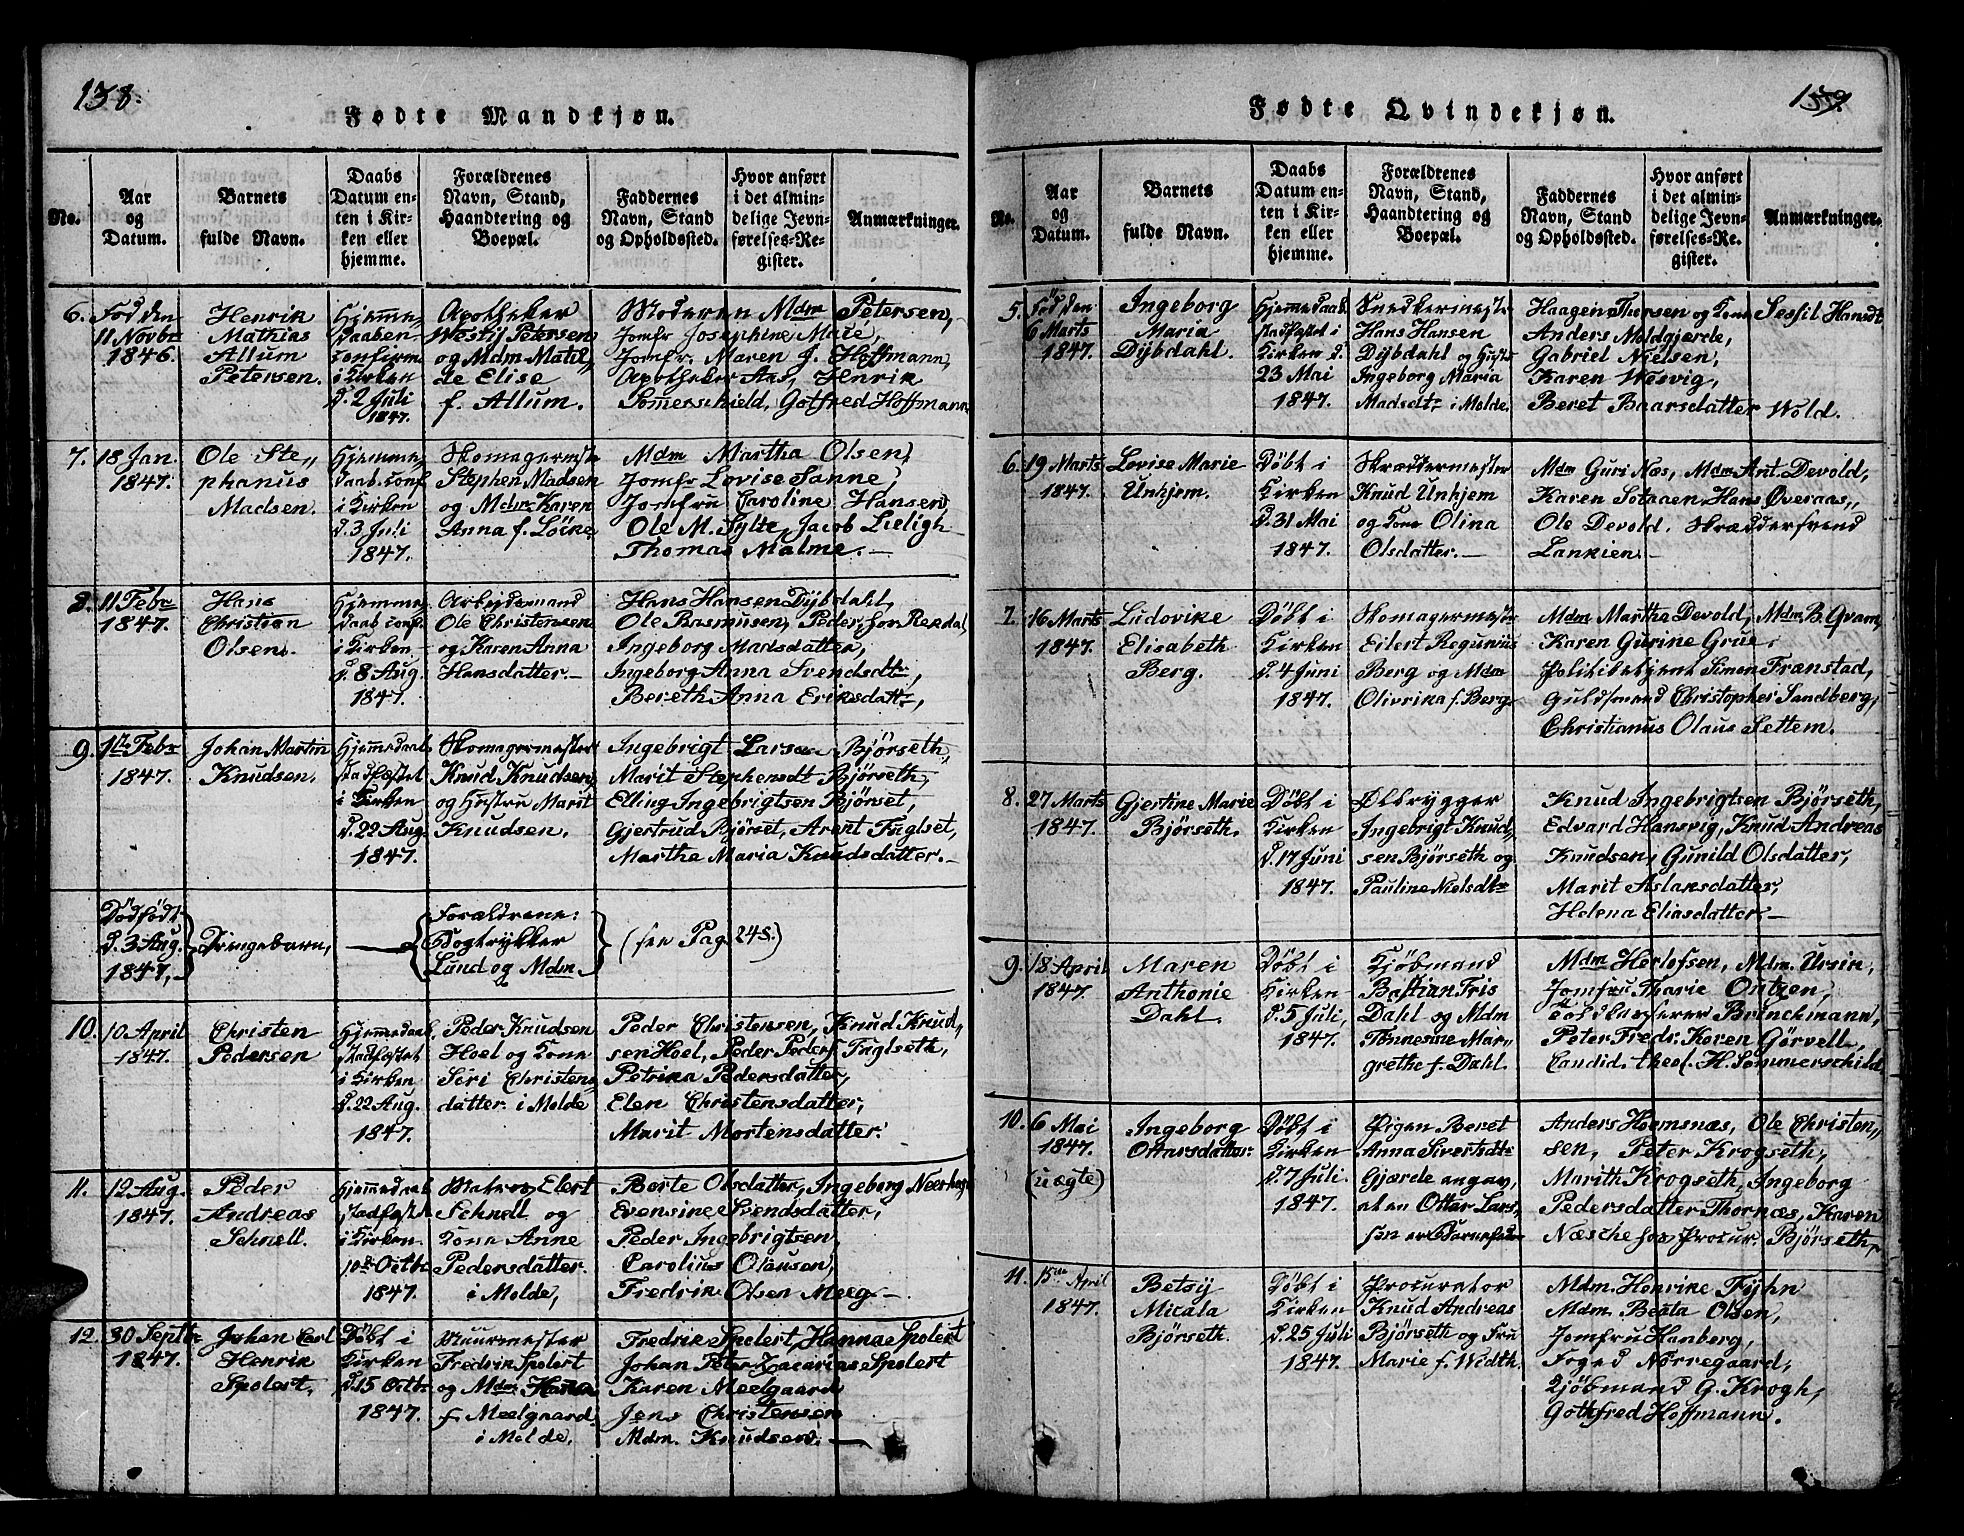 138.
Fødte Mandkjøn.
No.
Aar
og
Datum.
Barnets
fulde Navn.
Daabs
Datum en-
ten i Kir-
ken eller
hjemme.
Forældrenes
Navn, Stand,
Haandtering og
Boepæl.
Faddernes
Navn, Stand
og Opholdssted.
Hvor anført
i det almin-
delige Jevn-
førelses-Re-
gister.
Anmærkninger.
6.
Fød den
11 Novbr
1846.
Henrik
Mathias
Allum
Petersen.
Hjemme,
Daaben
confirm
i Kirken
d. 2 Juli
1847.
Apotheker
Westij Petersen
og Mdm Matil,
de Elise
f. Allum.
Moderen Mdm Petersen,
Jomfr Josephine Maie,
Jomfr. Maren J. Hoffmann,
Apotheker Aas, Henrik
Somerschield, Gotfred Hoffmann
7.
18 Jan.
1847.
Ole Ste,,
phanus
Madsen.
Hjemme,
daab conf
i Kirken
d. 3 Juli
1847.
Skomagermstr
Stephen Madsen
og Mdm Karen
Anna f. Löcke
Mdm Martha Olsen,
Jomfr Lovise Sanne,
Jomfru Caroline Hansen,
Ole M. Sylte, Jacob Lieligh
Thomas Malme.—
8.
11 Febr
1847.
Hans
Christian
Olsen.
Hjemme,
daab conf.
i Kirken
d. 8 Aug.
1847.
Arbejdsmand
Ole Christensen
og Karen Anna
Hansdatter.—
Hans Hansen Dijbdahl,
Ole Rasmusen, Peder Jon Rexdal
Ingeborg Madsdatter,
Ingeborg Anna Svendsdtr,
Bereth Anna Eriksdattr,
9.
1te Febr
1847.
Johan Martin
Knudsen.
Hjemedaab
stadfæstet
i Kirken
d. 22 Aug.
1847.
Skomagermester
Knud Knudsen,
og Hustru Marit
Knudsen.
Ingebrigt Larsen Bjørseth,
Marit Stephensdt Bjørseth,
Elling Ingebrigtsen Bjørset,
Gjertrud Bjørset, Arent Fuglset,
Marthe Maria Knudsdatter.—
Dødfødt
d. 3 Aug.
1847,—
Drengebarn,
Forældrene:
Bogtrykker
Lund og Mdm
(see Pag. 248.)
10.
10 April
1847.
Christen
Pedersen
Hjemmedaab
stadfæstet
i Kirken
d. 22 Aug.
1847.
Peder Knudsen
Hoel og Kone
Siri Christens,
datter i Molde
Peder Christensen, Knud Knud,
sen Hoel, Peder Peders. Fuglseth,
Petrika Pedersdatter,
Elen Christensdatter,
Marit Mortensdatter.
11.
12 Aug.
1847.
Peder
Andreas
Schnell.
Hjemmedaab
stadfæstet
i Kirken
10de Octbr
1847.
Matros Elert
Schnell og
Kone Anne
Pedersdatter.
i Molde,
Berte Olsdatter, Ingeborg
Evensine Svendsdatter,
Peder Ingebrigtsen,
Carolius Olausen,
Fredrik Olsen Meeg—
12.
30 Septbr
1847.
Johan Carl
Henrik
Spolert,
Døbt i
Kirken
d. 15 Octbr
1847.
Muurmester
Fredrik Spolert
og Mdm Hanna
f. Meelgaard
i Molde.
Fredrik Spolert, Hanna Spolert
Johan Peter Zacarias Spolert
Karen Meelgaard
Jens Christensen
Mdm. Knudsen.—
139.
Fødte Qvindekjøn.
No.
Aar
og
Datum.
Barnets
fulde Navn.
Daabs
Datum en-
ten i Kir-
ken eller
hjemme.
Forældrenes
Navn, Stand,
Haandtering og
Boepæl.
Faddernes
Navn, Stand
og Opholdssted.
Hvor anført
i det almin-
delige Jevn-
førelses-Re-
gister.
Anmærkninger.
5.
Fød den
6 Marts
1847.
Ingeborg
Maria
Dijbdahl.
Hjemedaab
stadfæstet i
Kirken d.
23 Mai
1847.
Snedkermestr
Hans Hansen
Dijbdahl og Hustr
Ingeborg Maria
Madsdtr i Molde.
Haagen Thorsen og Kone Sessil Hansdt
Anders Moldgjerde,
Gabriel Nielsen,
Karen Wesvig,
Beret Baarsdatter Wold.
6.
19 Marts
1847.
Lovise Marie
Unhjem.
Døbt i
Kirken
d. 31 Mai
1847.
Skræddermester
Knud Unhjem
og Kone Olina
Olsdatter.—
Mdm Guri Næs, Mdm Ant Devold,
Karen Sotaaen Hans Øveraas,,
Ole Devold. Skræddersvend
Lankien.—
7.
16 Marts
1847.
Ludovike
Elisabeth
Berg.
Døbt i
Kirken
d. 4 Juni
1847.
Skomagermestr
Eilert Reguniüs
Berg og Mdm
Olivrika f. Berg
Mdm Martha Devold, Mdm B. Qvam,
Karen Gurine Grue,
Politibetjent Simon Franstad,
Guldsmand Christopher Sandberg,
Christianus Olaus Settem.
8.
27 Marts
1847.
Gjertine Marie
Bjørseth.
Døbt i
Kirken
d. 17 Juni
1847.
Ølbrygger
Ingebrigt Knud,
sen Bjørseth og
Pauline Nielsdtr
Knud Ingebrigtsen Bjørseth,
Edvard Hansvig, Knud Andreas
Knudsen, Gunild Olsdatter,
Marit Aslaksdatter,
Helena Eliasdatter—
9.
18 April
1847.
Maren
Anthonie
Dahl.
Døbt i
Kirken
d. 5 Juli,
1847.
Kjöbmand
Bastian Fris
Dahl og Mdm
Tönnesine Mar,
grethe f. Dahl.
Mdm Herlofsen, Mdm. Ursin,
Jomfru Marie Ontzen,
Toldkasserer Brinchmann,
Peter Fredr. Koren Görvell,
Candid. theol. H. Sommerschild
10.
6 Mai
1847.
(uægte)
Ingeborg
Ottarsdatter
Døbt i
Kirken
d. 7 Juli.
1847.
Pigen Beret
Anna Sivertsdtr
Gjærde angav,
at en Ottar Lars,
sen er Barnefader
Anders Hoemsnæs, Ole Christen,,
sen, Peter Krogseth,
Marith Krogseth, Ingeborg
Pedersdatter Thornæs, Karen
Næsche hos Procur. Bjørseth,
11.
15de April
1847.
Betsij
Micala
Bjørseth.
Døbt i
Kirken
d. 25 Juli
1847.
Procurator
Knud Andreas
Bjørseth og Fru
Marie f. Width.
Mdm. Henrike Fijhn
Mdm. Beata Olsen,
Jomfru Hanberg,
Foged Nörregaard,
Kjøbmand G. Krogh,
Gottfred Hoffmann.